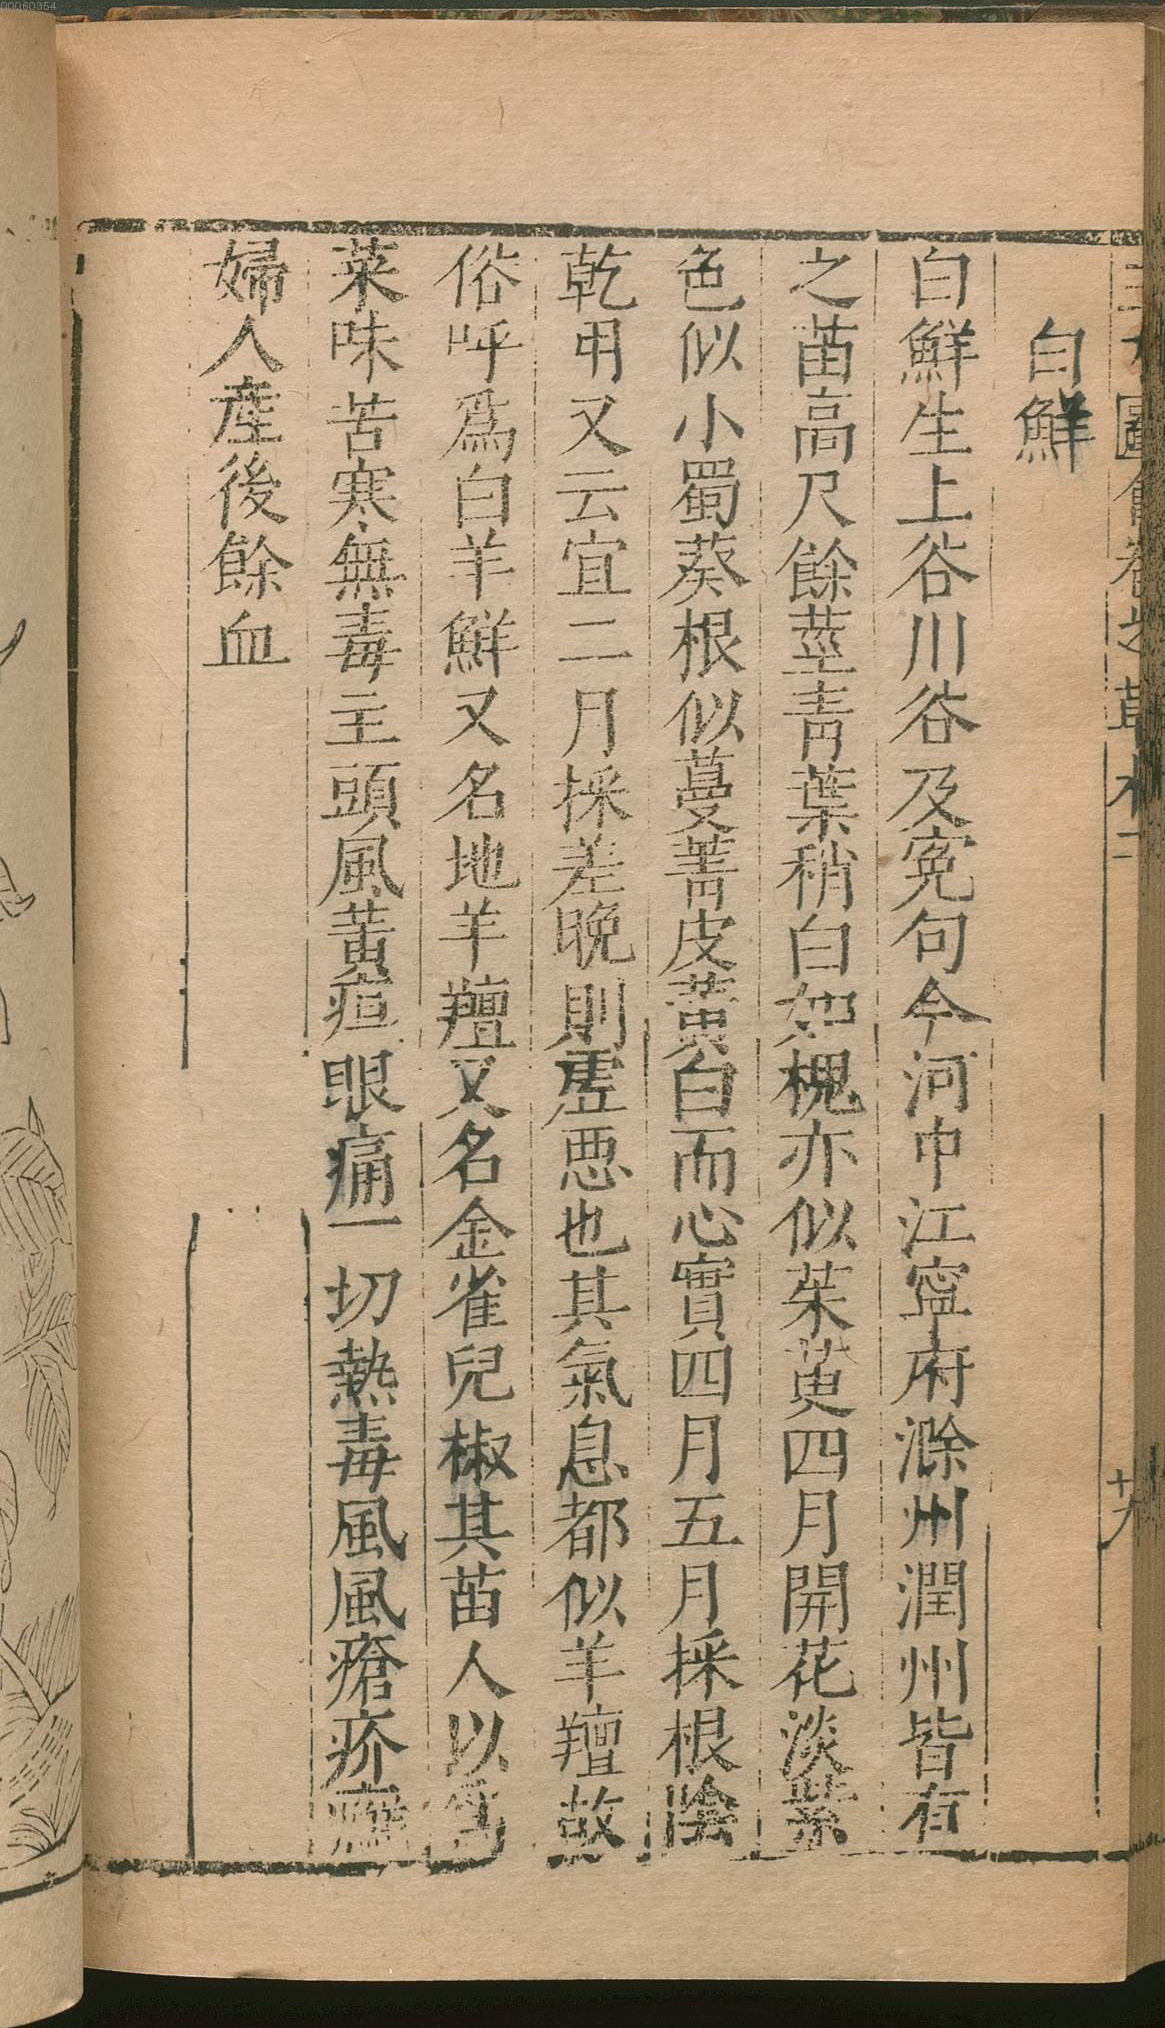 白鮮
白鮮生上谷川谷及寃句今河中江寧府滁州潤州皆有
之苗高尺餘莖青葉稍白如槐亦似茱萸四月開花淡紫
色似小蜀葵根似蔓菁皮黃白而心實四月五月採根陰
乾用又云宜二月採差晚則虛惡也其氣息都似羊羶故
俗呼爲白羊鮮又名地羊羶又名金雀兒椒其苗人以爲
菜味苦寒無毒主頭風黃疸眼痛一切熱毒風風瘡疥癬
婦人産後餘血
00060354